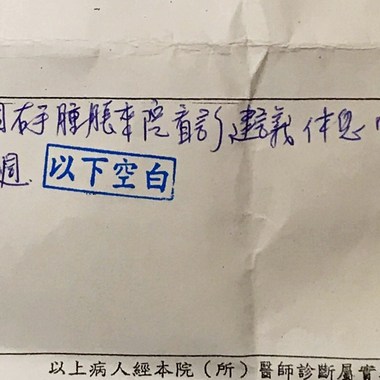 因右手腫脹本院就診建議休息
週 以下空白
以上病人經本院(所)醫師診斷屬實